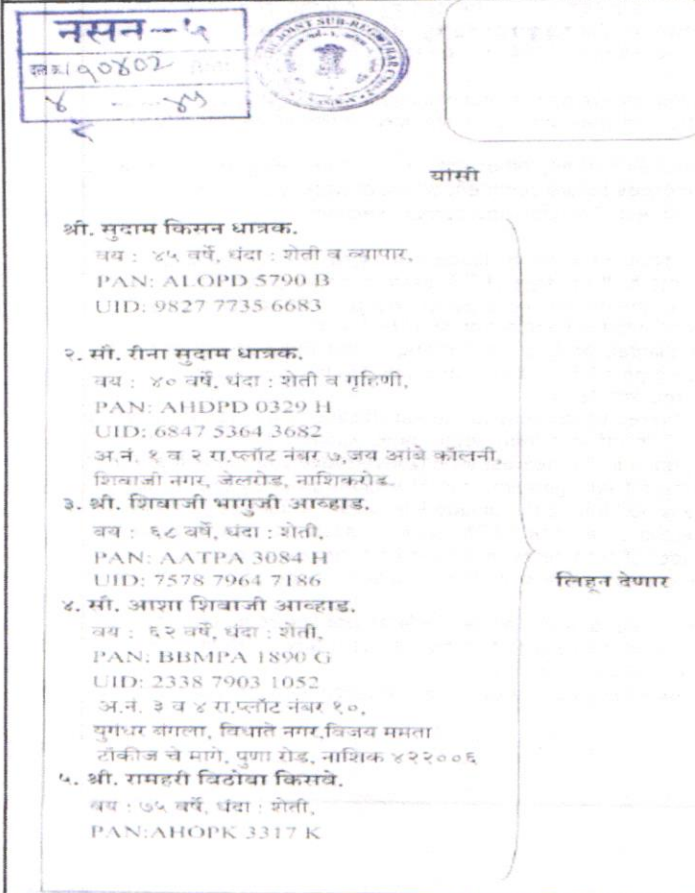 नसन--५
१०४०२
४ -- ४५
यांसी
श्री. सुदाम किसन धात्रक.
वय : ४५ वर्षे, धंदा : शेती व व्यापार,
PAN: ALOPD 5790 B
UID: 9827 7735 6683
२. सौ. रीना सुदाम धात्रक.
वय : ४० वर्षे, धंदा : शेती व गृहिणी,
PAN: AHDPD 0329 H
UID: 6847 5364 3682
अ.नं. १ व २ रा.प्लॉट नंबर ७,जय आंबे कॉलनी,
शिवाजी नगर, जेलरोड, नाशिकरोड.
३. श्री. शिवाजी भागुजी आव्हाड.
वय : ६८ वर्षे, धंदा : शेती,
PAN: AATPA 3084 H
UID: 7578 7964 7186
लिहून देणार
४. सौ. आशा शिवाजी आव्हाड.
वय : ६२ वर्षे, धंदा : शेती,
PAN: BBMPA 1890 G
UID: 2338 7903 1052
अ.नं. ३ व ४ रा.प्लॉट नंबर १०,
युगंधर बंगला, विधाते नगर,विजय ममता
टॉकीज चे मागे, पुणा रोड, नाशिक ४२२००६
५. श्री. रामहरी विठोबा किसवे.
वय : ७५ वर्षे, धंदा : शेती,
PAN:AHOPK 3317 K